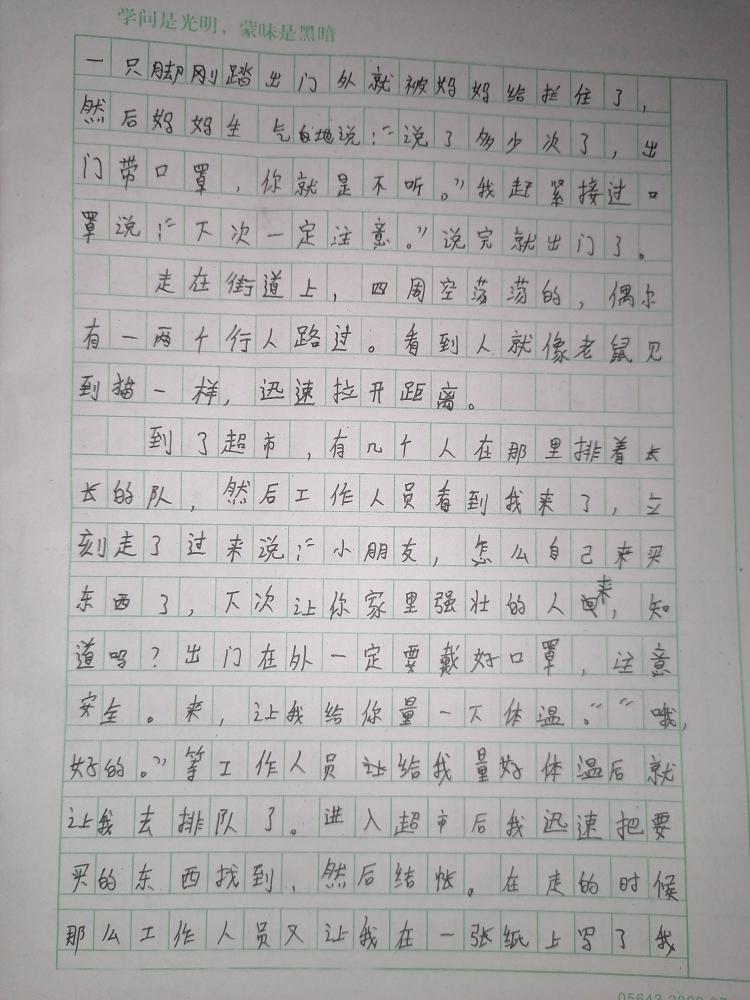 学问是光明，蒙昧是黑暗
一只脚刚踏出门外就被妈妈给拦住了，
然后妈妈生气的地说：“说了多少次了，出
门带口罩，你就是不听。”我赶紧接过口
罩说：“下次一定注意。”说完就出门了。
走在街道上，四周空荡荡的，偶尔
有一两个行人路过。看到人就像老鼠见
到猫一样，迅速拉开距离。
到了超市，有几个人在那里排着长
长的队，然后工作人员看到我来了，立
刻走了过来说：“小朋友，怎么自己来买
东西了，下次让你家里强壮的人来，知
道吗？出门在外一定要戴好口罩，注意
安全。来，让我给你量一下体温。”“哦，
好的。”等工作人员让给我量好体温后就
让我去排队了。进入超市后我迅速把要
买的东西找到，然后结帐。在走的时候
那么工作人员又让我在一张纸上写了我